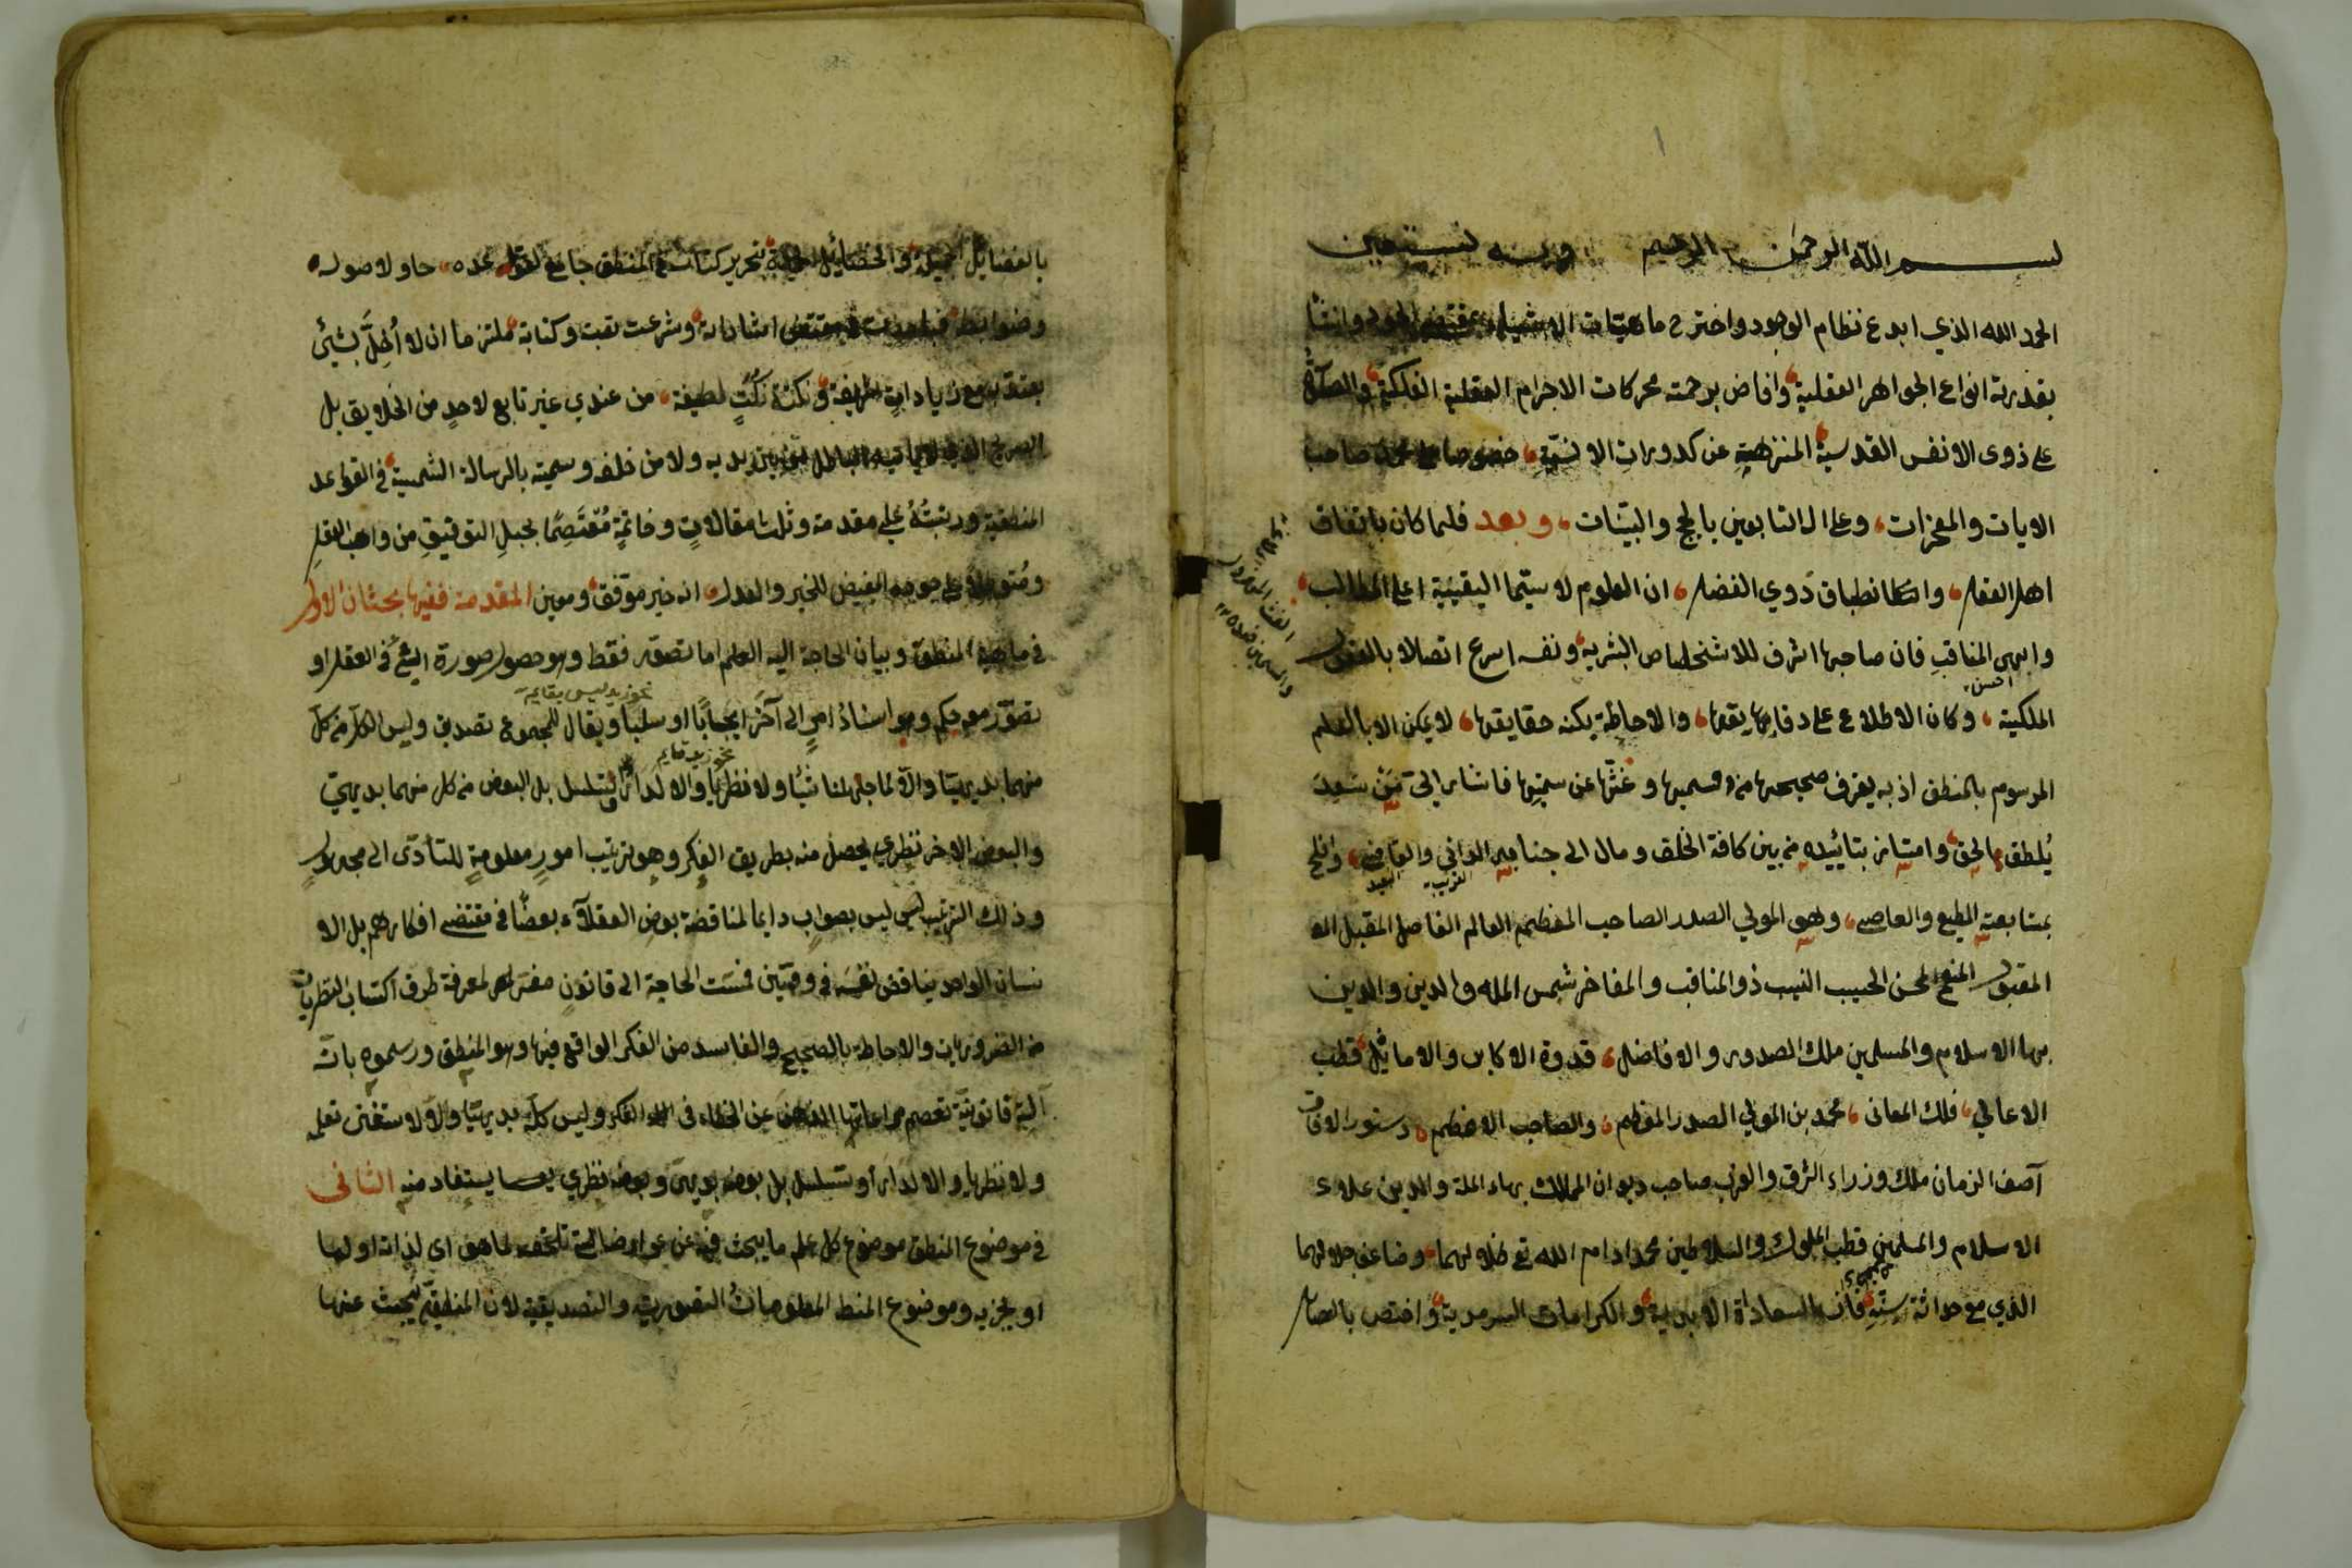 بسم الله الرحمن الرحيم وبه نستعين
الحمد لله الذي ابدع نظام الوجود واخترع ماهيات الاشياء بمقتضى الجود وانشأ
بقدرته انواع الجواهر العقلية وافاض برحمته محركات الاجرام العقلية الفلكية والصلوة
على ذوى الانفس القدسية المنزهة عن كدورات الانسية خصوصا على محمد صاحب
الايات والمعجزات وعلى ال التابعين بالحجج والبينات وبعد فلما كان باتفاق
اهل العقل وانطباق ذوي الفضل ان العلوم لا سيما اليقينية اعلى المطالب
وابهى المناقب فان صاحبها اشرف للاشخاص البشرية ونفسه اسرع اتصالا بالعقول
احسن
الملكية وكان الاطلاع على دقايقها والاحاطة بكنه حقايقها لا يمكن الا بالعلم
المرسوم بالمنطق اذ به يعرف صحيحها من سقيمها وغثها عن سمينها فاشار الى من سعد
بلطف الحق وامتاز بتائيده من بين كافة الخلق ومال الى جنابه الداني والقاصي وافلح
القريب البعيد
بمتابعته المطيع والعاصي وهو المولي الصدر الصاحب المعظم العالم الفاضل المقبل
المقبول المنعم المحسن الحسيب النسيب ذو المناقب والمفاخر شمس الملة والدين والدين
بها الاسلام والمسلمين ملك الصدور والافاضل قدوة الاكابر والاماثل قطب
الاعالي فلك المعانى محمد بن المولي الصدر المعظم والصاحب الاعظم دستور الافاق
آصف الزمان ملك وزراء الشرق والغرب صاحب ديوان الممالك بهاء الملة والدين علاء
الاسلام والمسلمين قطب الملوك والسلاطين محمد ادام الله تع ظلالهما وضاعف جلالهما
الذي مع حداثة سنه فاق بالسعادات الابدية والكرامات السرمدية واختص بالفضايل
بالفضايل الجميلة والخصائل الحميدة بتحرير كتاب في المنطق جامع لقواعده حاو لاصوله
وضوابطه فبادرت الى مقتضى اشاراته وشرعت في ثبته وكتابته ملتزما ان لا اخل بشئ
يعتد به مع زيادات شريفة ونكت لطيفة من عندي غير تابع لاحد من الخلايق بل
الصريح الذي لا ياتيه الباطل من بين يديه ولا من خلفه وسميته بالرسالة الشمسية في القواعد
المنطقية ورتبته على مقدمة وثلث مقالات وخاتمة معتصما بحبل التوفيق من واهب العقل
ومتوكلا على جوده المفيض للخير والعدل انه خير موفق ومعين المقدمة ففيها بحثان الاول
في ماهية المنطق وبيان الحاجة اليه العلم اما تصور فقط وهو حصول صورة الشئ في العقل او
نحو زيد ليس بقايم
تصور معه حكم وهو اسناد امر الى آخر ايجابا او سلبا ويقال للمجموع تصديق وليس الكل من كل
نحو زيد قايم
منهما بديهيا والا لما جهلنا شيئا ولا نظريا والا لدار او تسلسل بل البعض من كل منهما بديهي
والبعض الاخر نظري يحصل منه بطريق الفكر وهو ترتيب امور معلومة للتأدى الى مجهول
وذلك الترتيب ليس بصواب دايما لمناقضة بعض العقلاء بعضا في مقتضى افكارهم بل الا
نسان الواحد يناقض نفسه في وقتين فمست الحاجة الى قانون مفيد لمعرفة طرق اكتساب النظريات
من الضروريات والاحاطة بالصحيح والفاسد من الفكر الواقع فيها وهو المنطق ورسموه بانه
آلة قانونية تعصم مراعاتها الذهن عن الخطاء في الفكر وليس كله بديهيا والا لاستغنى تعلمه
ولا نظريا والا لدار او تسلسل بل بعضه بديهي وبعضه نظري يستفاد منه الثانى
في موضوع المنطق موضوع كل علم ما يبحث فيه عن عوارضه التي تلحقه لما هو اي لذاته او لما
او لجزيه وموضوع المنطق المعلومات التصورية والتصديقية لان المنطقي يبحث عنها